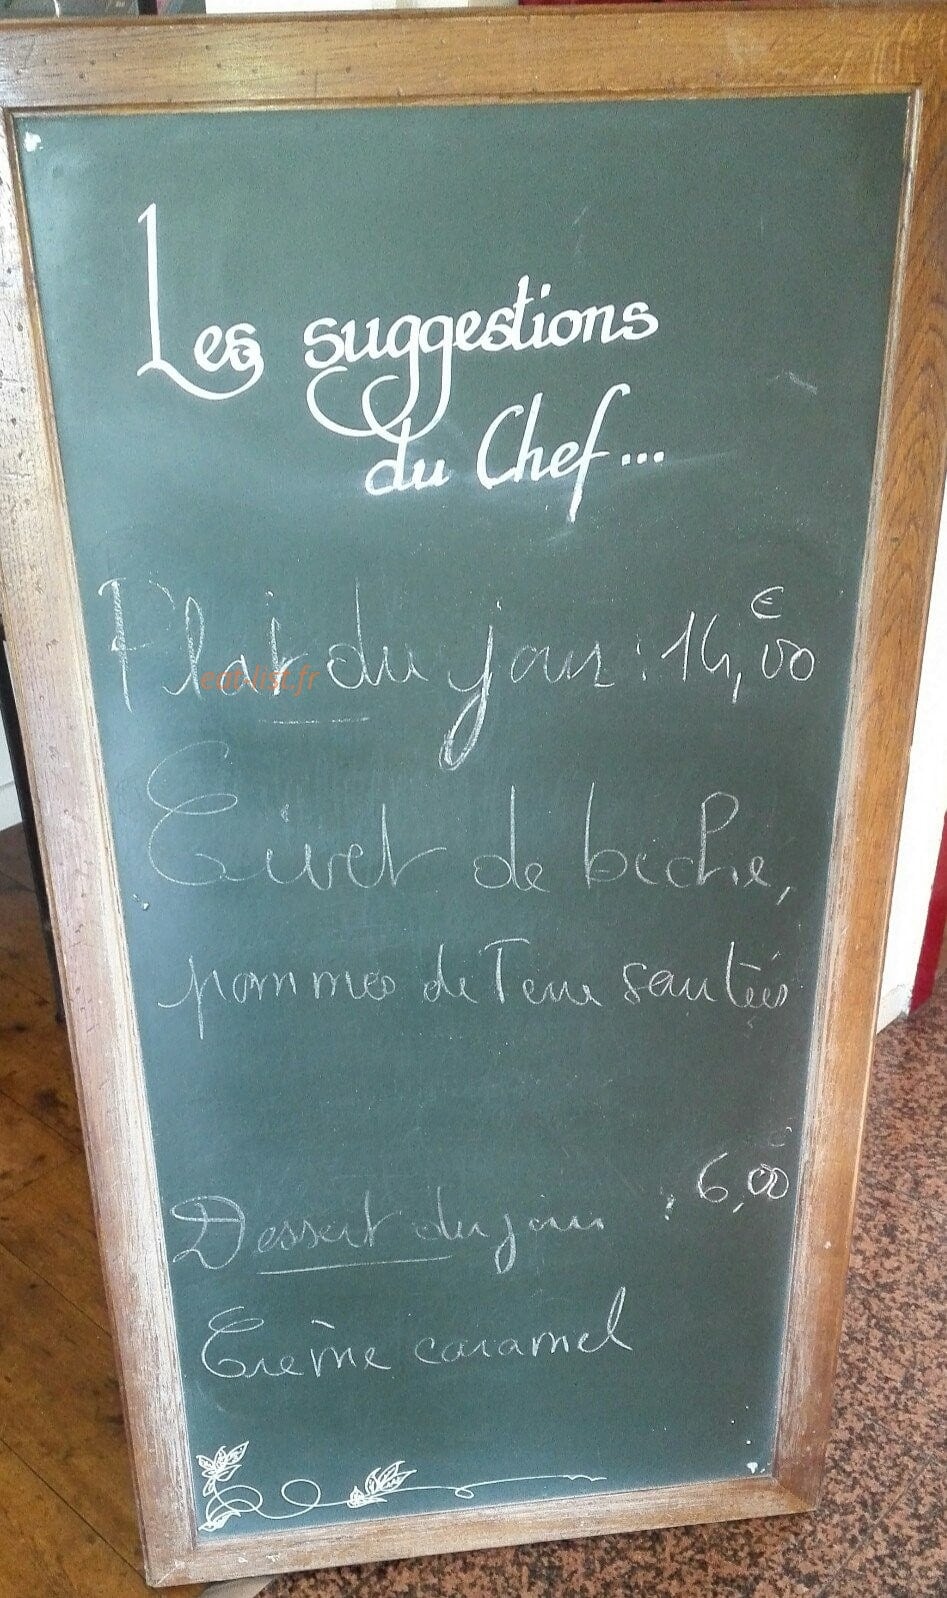 Les suggestions
du Chef...
Plat du jour : 14,00 €
eat-list.fr
Civet de biche,
pommes de Terre sautées
Dessert du jour : 6,00 €
Crème caramel